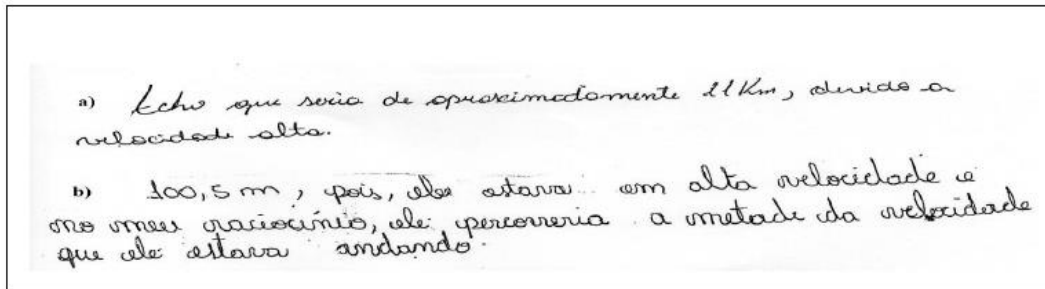 a) Acho que seria de aproximadamente 11 Km, devido a
velocidade alta.
b) 100,5 m, pois, ele estava em alta velocidade e
no meu raciocínio, ele percorreria a metade da velocidade
que ele estava andando.